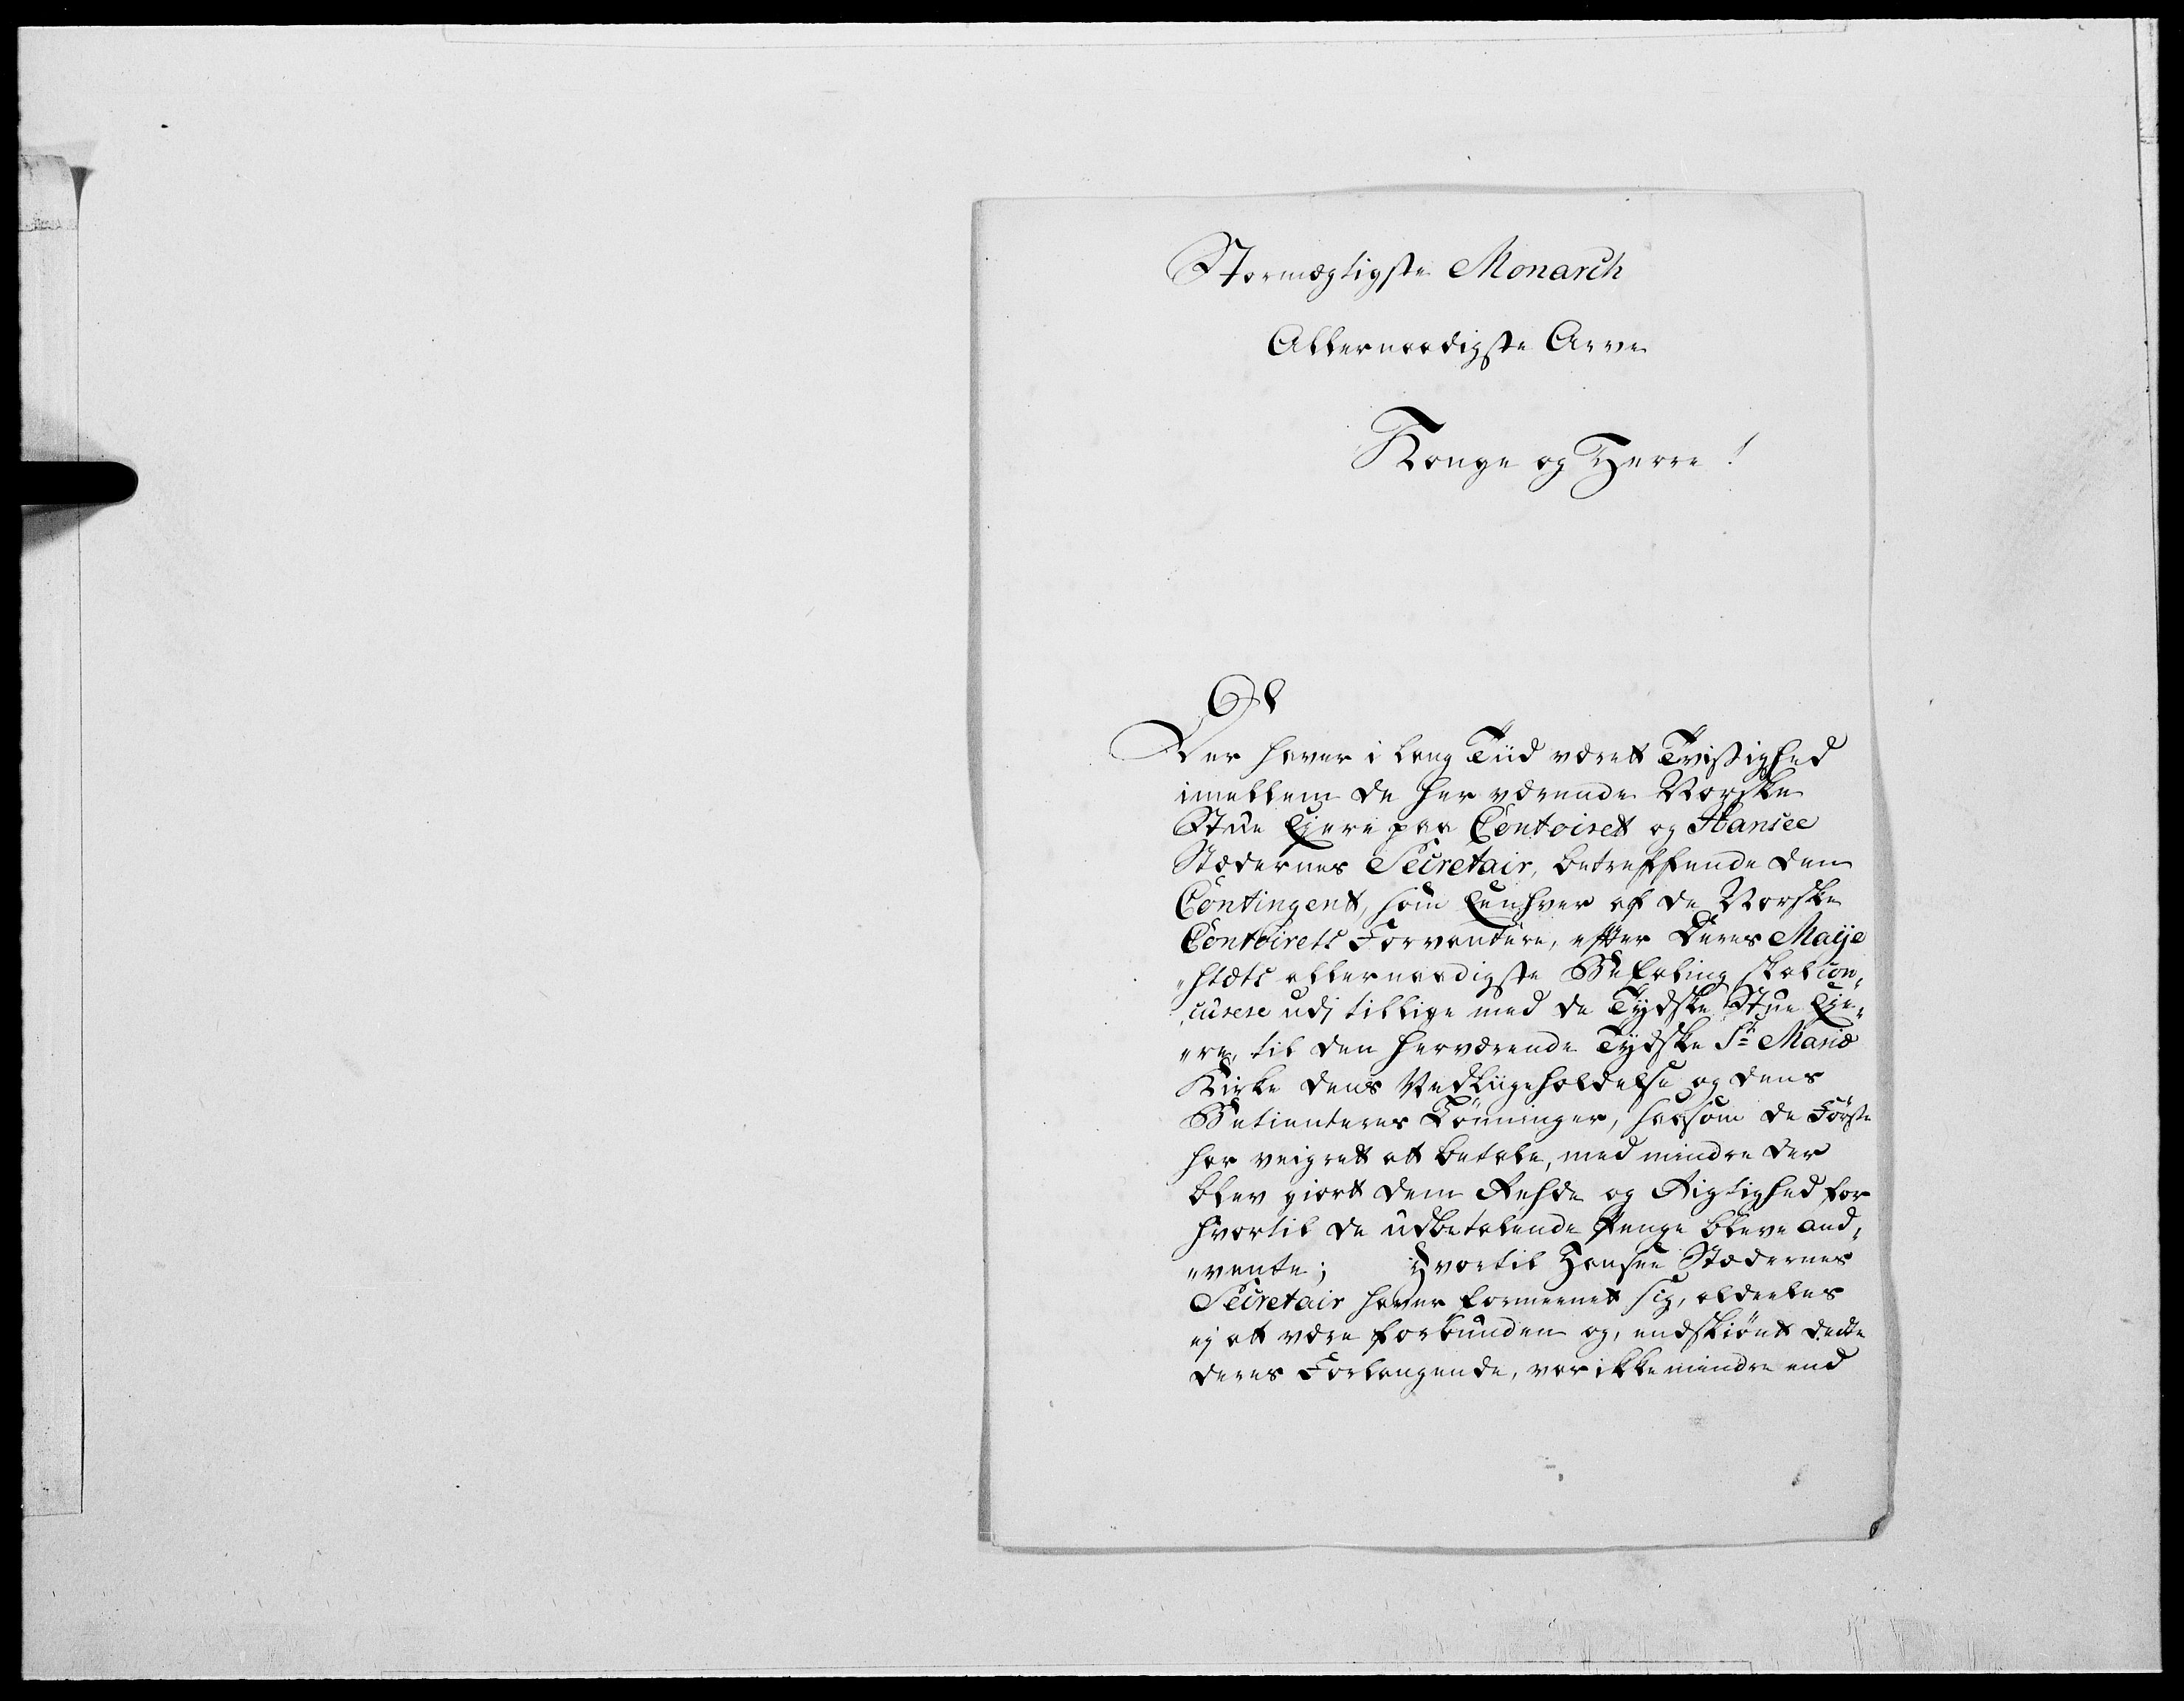 Stormægtigste Monarch
Allernaadigste Arve
Konge og Herre!
Der haver i lang Tiid været Tvistighed
imellem de her værende Norske
Stue Ejere paa Contoiret og Hansee
Stædernes Secretair, betreffende den
Contingent, som Eenhver af de Norske
Contoirets Forvantere, efter Deres Maije
„stæts allernaadigste Befaling skal con„
„curere udj tillige med de Tydske Stue Eje„
„re, til den herværende Tydske St: Mariæ
Kirke dens Vedliigeholdelse og dens
Betienteres Lønninger, saasom de Første
har veigret at betale, med mindre der
blev giort dem Rehde og Rigtighed for
hvortil de udbetalende Penge bleve and„
„vente; Hvortil Hansee Stædernes
Secretair haver formeenet sig, aldeeles
ej at være forbunden og, endskiønt dette
deres Forlangende, var ikke mindre end